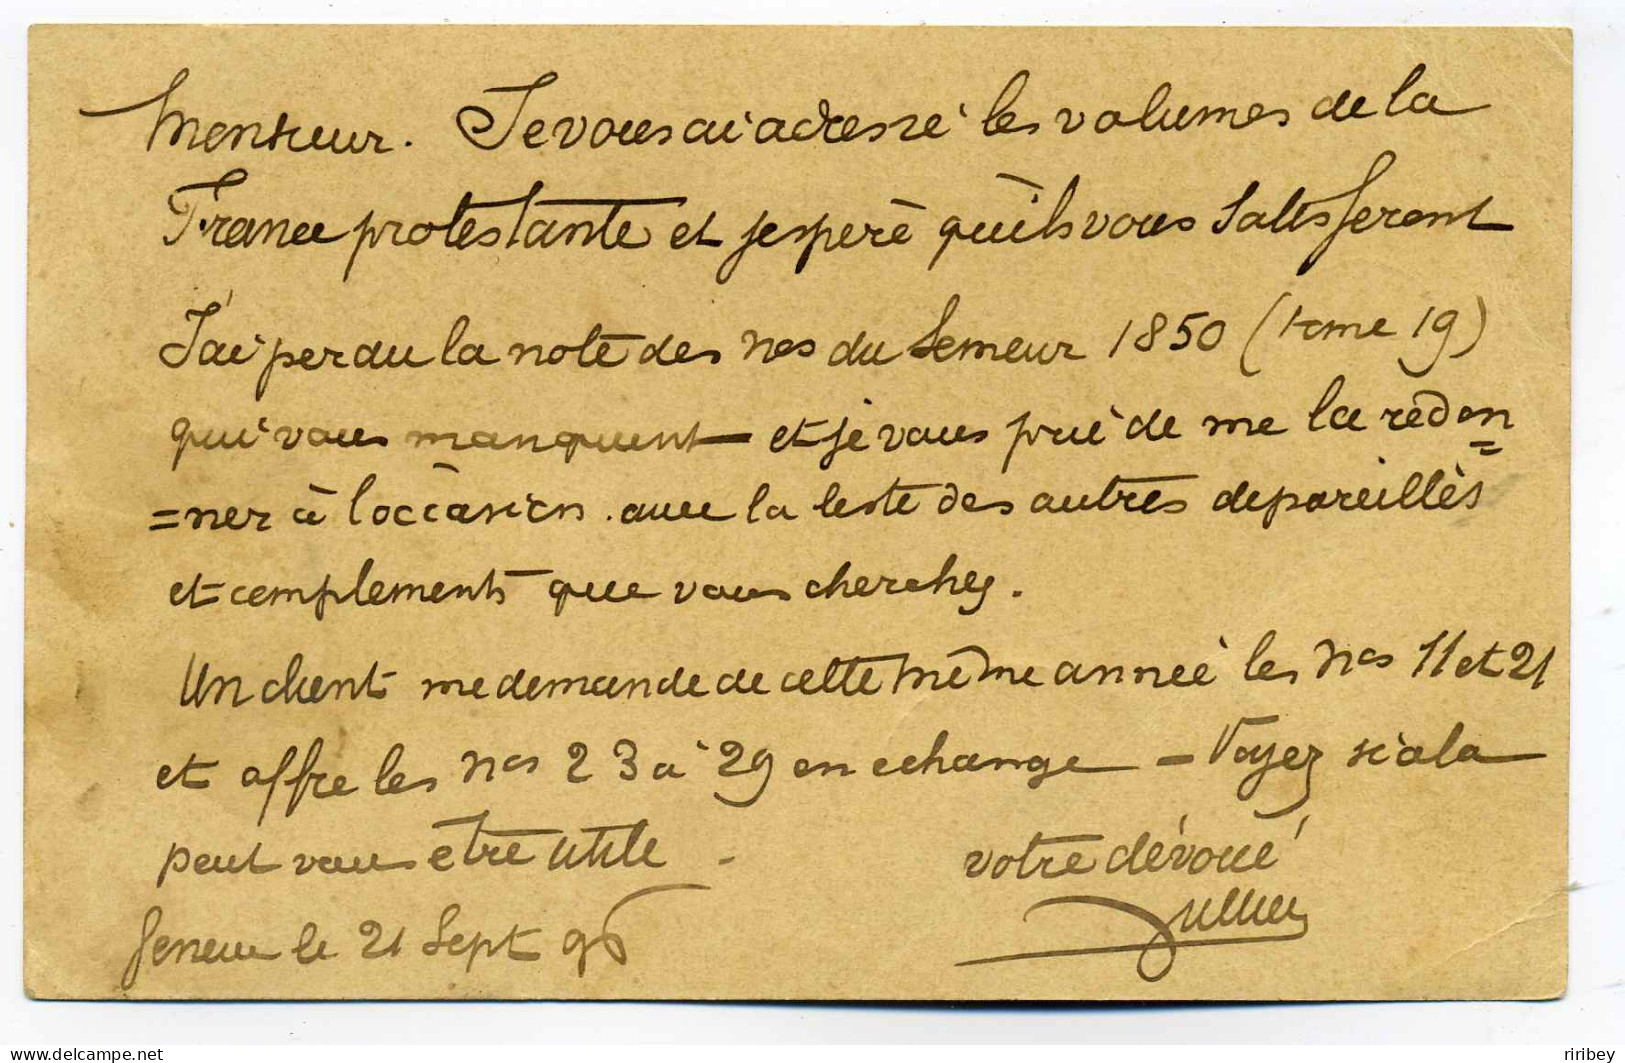 Monsieur. Je vous ai adressé les volumes de la
France protestante et j'espère qu'ils vous satisferont
J'ai perdu la note des nos du Semeur 1850 (tome 19)
qui vous manquent et je vous prie de me la redon
=ner à l'occasion avec la liste des autres dépareillés
et complements que vous cherchez.
Un client me demande de cette même année les nos 11 et 21
et offre les nos 23 à 29 en echange - Voyez si cela
peut vous être utile -
votre dévoué
Jullien
Geneve le 21 Sept 96
delcampe.net
riribey